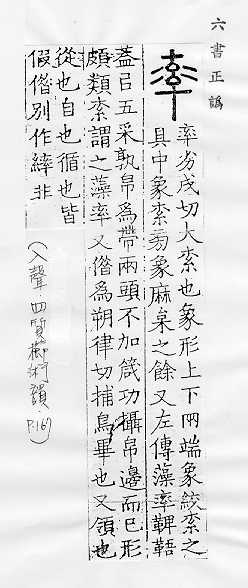 六書正譌
率劣戌切大索也象形上下兩端象絞索之
具中象索旁象麻枲之餘又左傳藻率鞞鞛
葢㠯五采孰帛為帶兩頭不加箴功攝帛邊而巳形
頗類索謂之藻率又偕為朔律切捕鳥畢也又領也
從也自也循也皆
假偕別作繂非
(入聲四質櫛術韻.P.167)